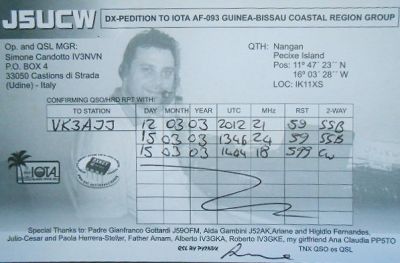 J5UCW
DX-PEDITION TO IOTA AF-093 GUINEA-BISSAU COASTAL REGION GROUP
Op. and QSL MGR:
Simone Candotto IV3NVN
P.O. BOX 4
33050 Castions di Strada
(Udine) - Italy
QTH: Nangan
Pecixe Island
Pos: 11° 47' 23" N
16° 03' 28" W
LOC: IK11XS
CONFIRMING QSO/HRD RPT WITH:
TO STATION DAY MONTH YEAR UTC MHz RST 2-WAY
VK3AJJ 12 03 03 2012 21 59 SSB
15 03 03 1346 24 59 SSB
15 03 03 1404 18 599 CW
IOTA
Special Thanks to: Padre Gianfranco Gottardi J59OFM, Alda Gambini J52AK, Ariane and Higidio Fernandes,
Julio-Cesar and Paola Herrera-Stellar, Father Amam, Alberto IV3GKA, Roberto IV3GKE, my girlfriend Ana Claudia PP5TO
QSL BY PY2KDX
TNX QSO es QSL